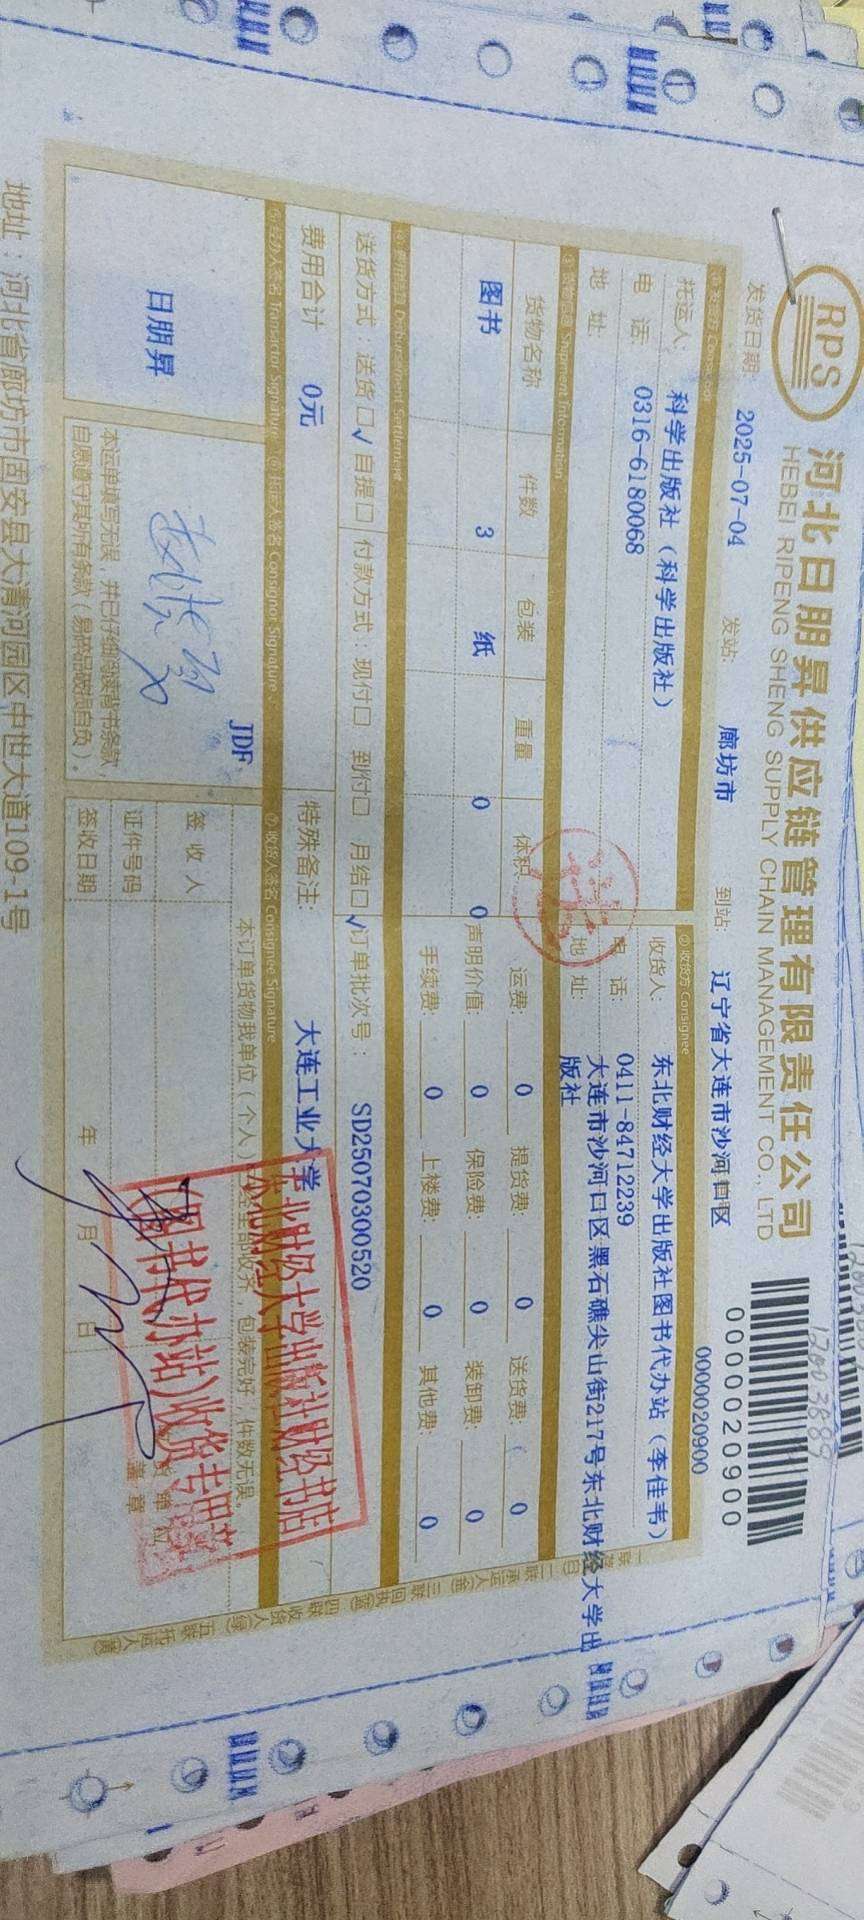 RPS
河北日朋昇供应链管理有限责任公司
HEBEI RIPENG SHENG SUPPLY CHAIN MANAGEMENT CO., LTD
12003889
0000020900
发货日期: 2025-07-04 发站: 廊坊市 到站: 辽宁省大连市沙河口区
0000020900
① 发货方 Consignor
② 收货方 Consignee
托运人: 科学出版社(科学出版社)
收货人: 东北财经大学出版社图书代办站(李佳韦)
电 话: 0316-6180068
电 话: 0411-84712239
地 址:
地 址: 大连市沙河口区黑石礁尖山街217号东北财经大学出版社
③ 货物信息 Shipment Information
货物名称 件数 包装 重量 体积
图书 3 纸 0 0
运费: 0 提货费: 0 送货费: 0
声明价值: 0 保险费: 0 装卸费: 0
手续费: 0 上楼费: 0 其他费: 0
④ 费用结算 Disbursement Settlement
送货方式: 送货□√ 自提□ 付款方式: 现付□ 到付□ 月结□√ 订单批次号: SD25070300520
费用合计 0元 特殊备注: 大连工业大学
⑤ 经办人签名 Transactor Signature
⑥ 托运人签名 Consignor Signature
⑦ 收货人签名 Consignee Signature
日朋昇
JDF
本运单填写无误,并已仔细阅读背书条款,
自愿遵守其所有条款(易碎品破损自负)。
本订单货物我单位(个人)已经全部收齐,包装完好,件数无误。
签 收 人
证件号码
签收日期 年 月 日
收货单位
盖 章
东北财经大学出版社财经书店
(图书代办站)收货专用章
二联承运人(金)
三联回执(蓝)
四联收货人(绿)
五联托运人(黄)
地址:河北省廊坊市固安县大清河园区中世大道109-1号